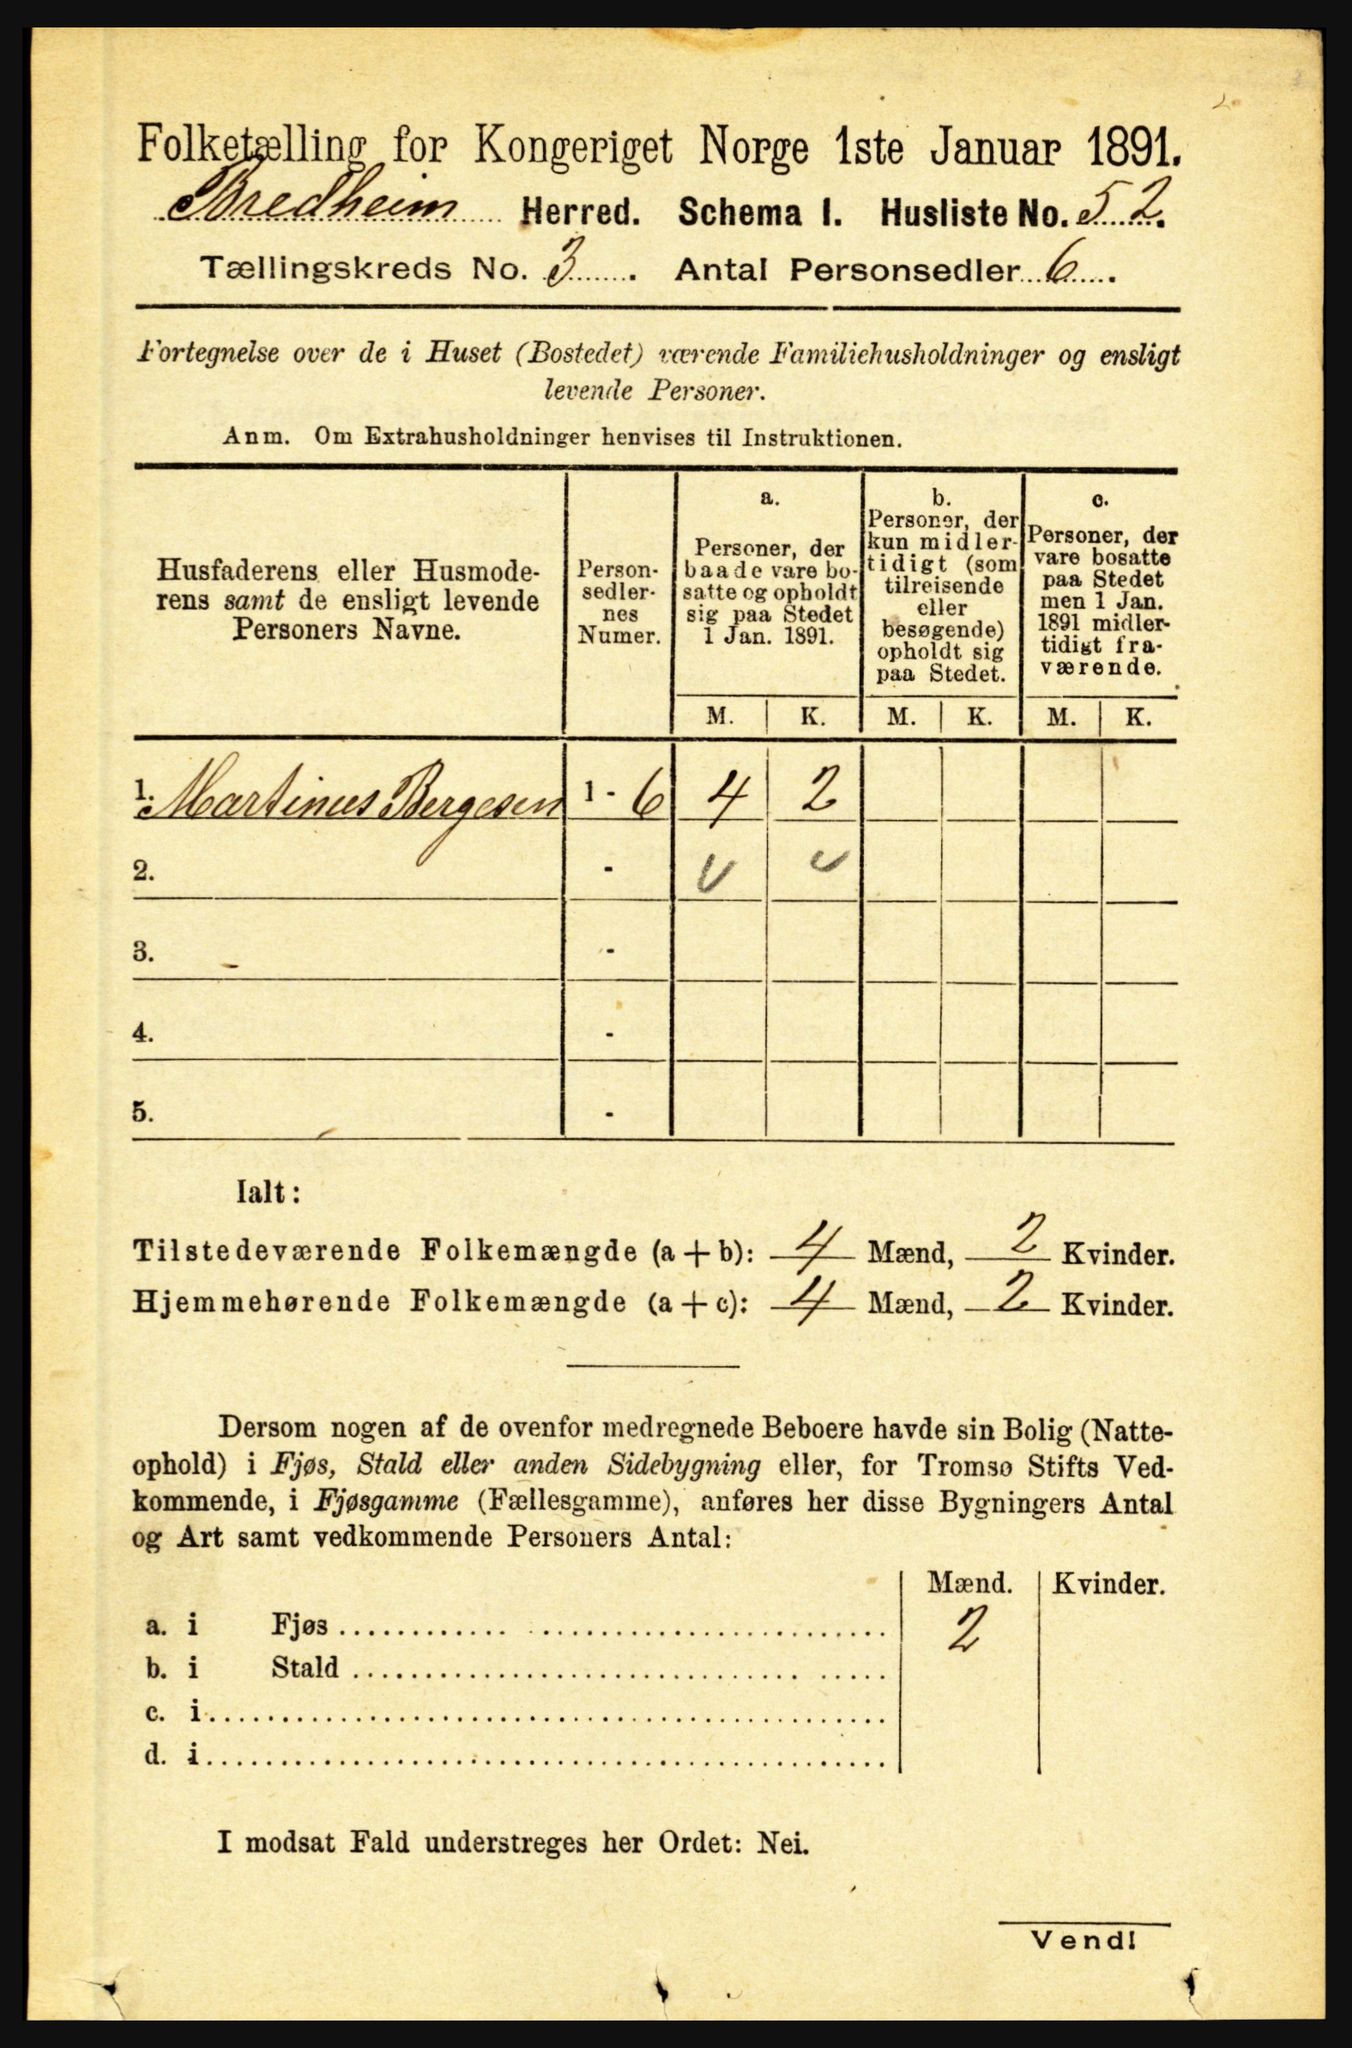 Folketælling for Kongeriget Norge 1ste Januar 1891.
Bredheim Herred. Schema I. Husliste No. 52.
Tællingskreds No. 3. Antal Personsedler 6.
Fortegnelse over de i Huset (Bostedet) værende Familiehusholdninger og ensligt
levende Personer.
Anm. Om Extrahusholdninger henvises til Instruktionen.
Husfaderens eller Husmode-
rens samt de ensligt levende
Personers Navne.
Person-
sedler-
nes
Numer.
a.
Personer, der
baade vare bo-
satte og opholdt
sig paa Stedet
1 Jan. 1891.
b.
Personer, der
kun midler-
tidigt (som
tilreisende
eller
besøgende)
opholdt sig
paa Stedet.
c.
Personer, der
vare bosatte
paa Stedet
men 1 Jan.
1891 midler-
tidigt fra-
værende.
M. K. M. K. M. K.
1. Martinus Bergesen 1 - 6 4 2
2. -
3. -
4. -
5. -
Ialt:
Tilstedeværende Folkemængde (a + b): 4 Mænd, 2 Kvinder.
Hjemmehørende Folkemængde (a + c): 4 Mænd, 2 Kvinder.
Dersom nogen af de ovenfor medregnede Beboere havde sin Bolig (Natte-
ophold) i Fjøs, Stald eller anden Sidebygning eller, for Tromsø Stifts Ved-
kommende, i Fjøsgamme (Fællesgamme), anføres her disse Bygningers Antal
og Art samt vedkommende Personers Antal:
Mænd. Kvinder.
a. i Fjøs 2
b. i Stald
c. i
d. i
I modsat Fald understreges her Ordet: Nei.
Vend!